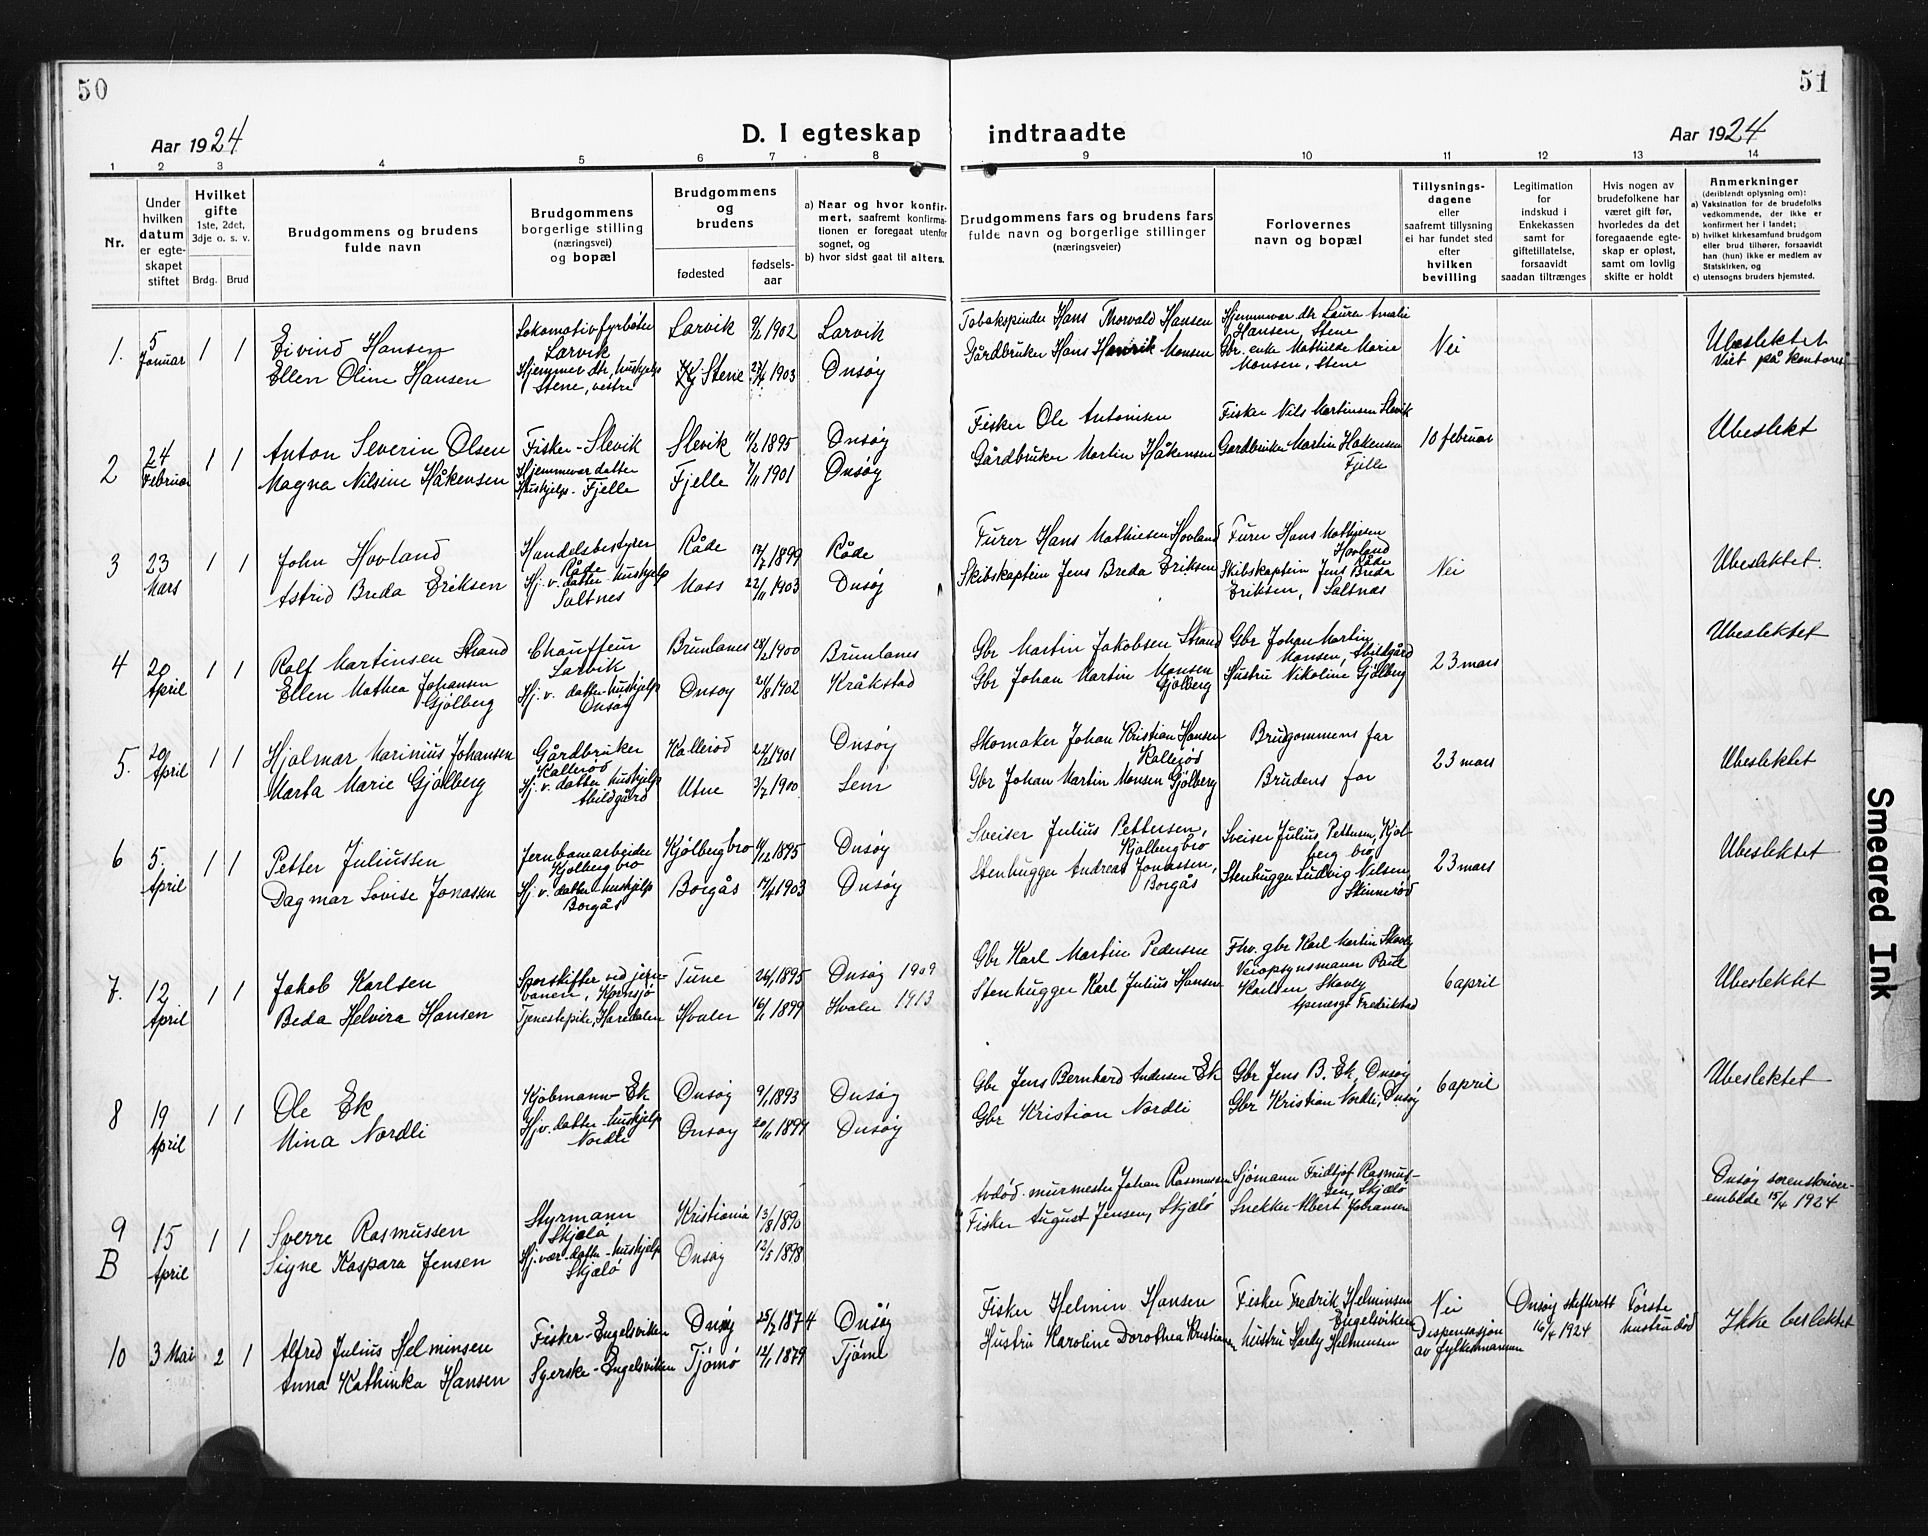 50
Aar 1924
D. I egteskap
1 2 3 4 5 6 7 8
Nr.
Under hvilken datum er egteskapet stiftet
Hvilket gifte 1ste, 2det, 3dje o. s. v.
Brdg. Brud
Brudgommens og brudens fulde navn
Brudgommens borgerlige stilling (næringsvei) og bopæl
Brudgommens og brudens
fødested
fødselsaar
a) Naar og hvor konfirmert, saafremt konfirmationen er foregaat utenfor sognet, og
b) hvor sidst gaat til alters.
51
indtraadte
Aar 1924
9 10 11 12 13 14
Brudgommens fars og brudens fars fulde navn og borgerlige stillinger (næringsveier)
Forlovernes navn og bopæl
Tillysningsdagene eller saafremt tillysning ei har fundet sted efter hvilken bevilling
Legitimation for indskud i Enkekassen samt for giftetillatelse, forsaavidt saadan tiltrænges
Hvis nogen av brudefolkene har været gift før, hvorledes da det foregaaende egteskap er opløst, samt om lovlig skifte er holdt
Anmerkninger (deriblandt oplysning om):
a) Vaksination for de brudefolks vedkommende, der ikke er konfirmert her i landet;
b) hvilket kirkesamfund brudgom eller brud tilhører, forsaavidt han (hun) ikke er medlem av Statskirken, og
c) utensogns bruders hjemsted.
1. 5 Januar 1 1
Eivind Hansen Lokomotivfyrbøter Larvik Larvik 9/2 1902 Larvik
Ellen Oline Hansen Hjemmev. dtr, hushjelp Stene, vestre Stene 1903 Onsøy
Tobakspinder Hans Thorvald Hansen
Gårdbruker Hans Henrik Monsen
Hjemmevær. dtr Laura Amalie Hansen, Stene
Gbr. enke Mathilde Marie Monsen, Stene
Nei
Ubeslektet
Viet på kontoret
2 24 Februar 1 1
Anton Severin Olsen Fisker - Slevik Slevik 1895 Onsøy
Magna Nilsine Håkensen Hjemmevær datter Hushjelp. Fjelle Fjelle 1901 Onsøy
Fisker Ole Antonisen
Gårdbruker Martin Håkensen
Fisker Nils Martinsen Slevik
Gardbruker Martin Hakensen Fjelle
10 februar
Ubeslekt
3 23 Mars 1 1
John Hovland Handelsbestyrer Råde Råde 1899 Råde
Astrid Breda Eriksen Hj. v. datter hushjelp Saltnes Moss 22/11 1903 Onsøy
Furer Hans Mathiesen Hovland
Skibskaptein Jens Breda Eriksen
Furer Hans Mathiesen Hovland Råde
Skibskaptein Jens Breda Eriksen, Saltnes
Nei
Ubeslektet.
4 20 April 1 1
Rolf Martinsen Strand Chauffeur Larvik Brunlanes 28/2 1900 Brunlanes
Ellen Mathea Johansen Gjølberg Hj. v. datter hushjelp Onsøy Onsøy 1902 Kråkstad
Gbr Martin Jakobsen Strand
Gbr Johan Martin Monsen Gjølberg
Gbr Johan Martin Monsen, Abildgård
Hustru Nikoline Gjølberg
23 mars
Ubeslektet
5. 20 April 1 1
Hjalmar Marinius Johansen Gårdbruker Kallerød Kallerød 1901 Onsøy
Marta Marie Gjølberg Hj. v. datter hushjelp Abildgård Utne 3/7 1900 Sem
Skomaker Johan Kristian Hansen Kallerød
Gbr Johan Martin Monsen Gjølberg
Brudgommens far
Brudens far
23 mars
Ubeslektet
6 5. April 1 1
Petter Juliussen Jernbanearbeider Kjølberg bro Kjølberg bro 1895 Onsøy
Dagmar Lovise Jonassen Hj. v. datter hushjelp Borgås Borgås 17/4 1903 Onsøy
Sveiser Julius Pettersen, Kjølberg bro
Stenhugger Andreas Jonassen, Borgås
Sveiser Julius Pettersen, Kjølberg bro
Stenhugger Ludvig Nilsen, Skinnerød
23 mars
Ubeslektet
7. 12 April 1 1
Jakob Karlsen Sporskifter ved jernbanen, Kornsjø Tune 26/1 1895 Onsøy 1909
Beda Helvira Hansen Tjenestepike, Haredalen Hvaler 16/1 1899 Hvaler 1913
Gbr Karl Martin Pedersen
Stenhugger Karl Julius Hansen
Fhv. gbr Karl Martin Skovly
Veiopsynsmann Paul Karlsen, Skovly Fredrikstad
6 april
Ubeslektet
8 19 April 1 1
Ole Ek Kjøbmann - Ek Onsøy 9/1 1893 Onsøy
Mina Nordli Hj v. datter - hushjelp Nordli Onsøy 20/11 1899 Onsøy
Gbr Jens Bernhard Andersen Ek
Gbr Kristian Nordli
Gbr Jens B. Ek, Onsøy
Gbr Kristian Nordli, Onsøy
6 april
Ubeslektet
9 B 15 April 1 1
Sverre Rasmussen Styrmann Skjælø Kristiania 13/8 1890
Signe Kaspara Jensen Hj. vær. datter - hushjelp Skjælø Onsøy 12/5 1898
Avdød murmester Johan Rasmussen
Fisker August Jensen, Skjælø
Sjømann Fridtjof Rasmussen, Skjælø
Snekker Albert Johansen
Onsøy sorenskriverembede 15/4 1924
10 3 Mai 2 1
Alfred Julius Helminsen Fisker - Engelsviken Onsøy 25/2 1874 Onsøy
Anna Kathinka Hansen Syerske - Engelsviken Tjømø 12/1 1879 Tjøme
Fisker Helmin Hansen
Hustru Karoline Dorothea Kristiansen
Fisker Fredrik Helminsen Engelsviken
Hustru Helminsen
Nei
Dispensasjon av fylkesmannen
Onsøy skifterett 16/4 1924
Første hustru død
Ikke beslektet
Smeared Ink